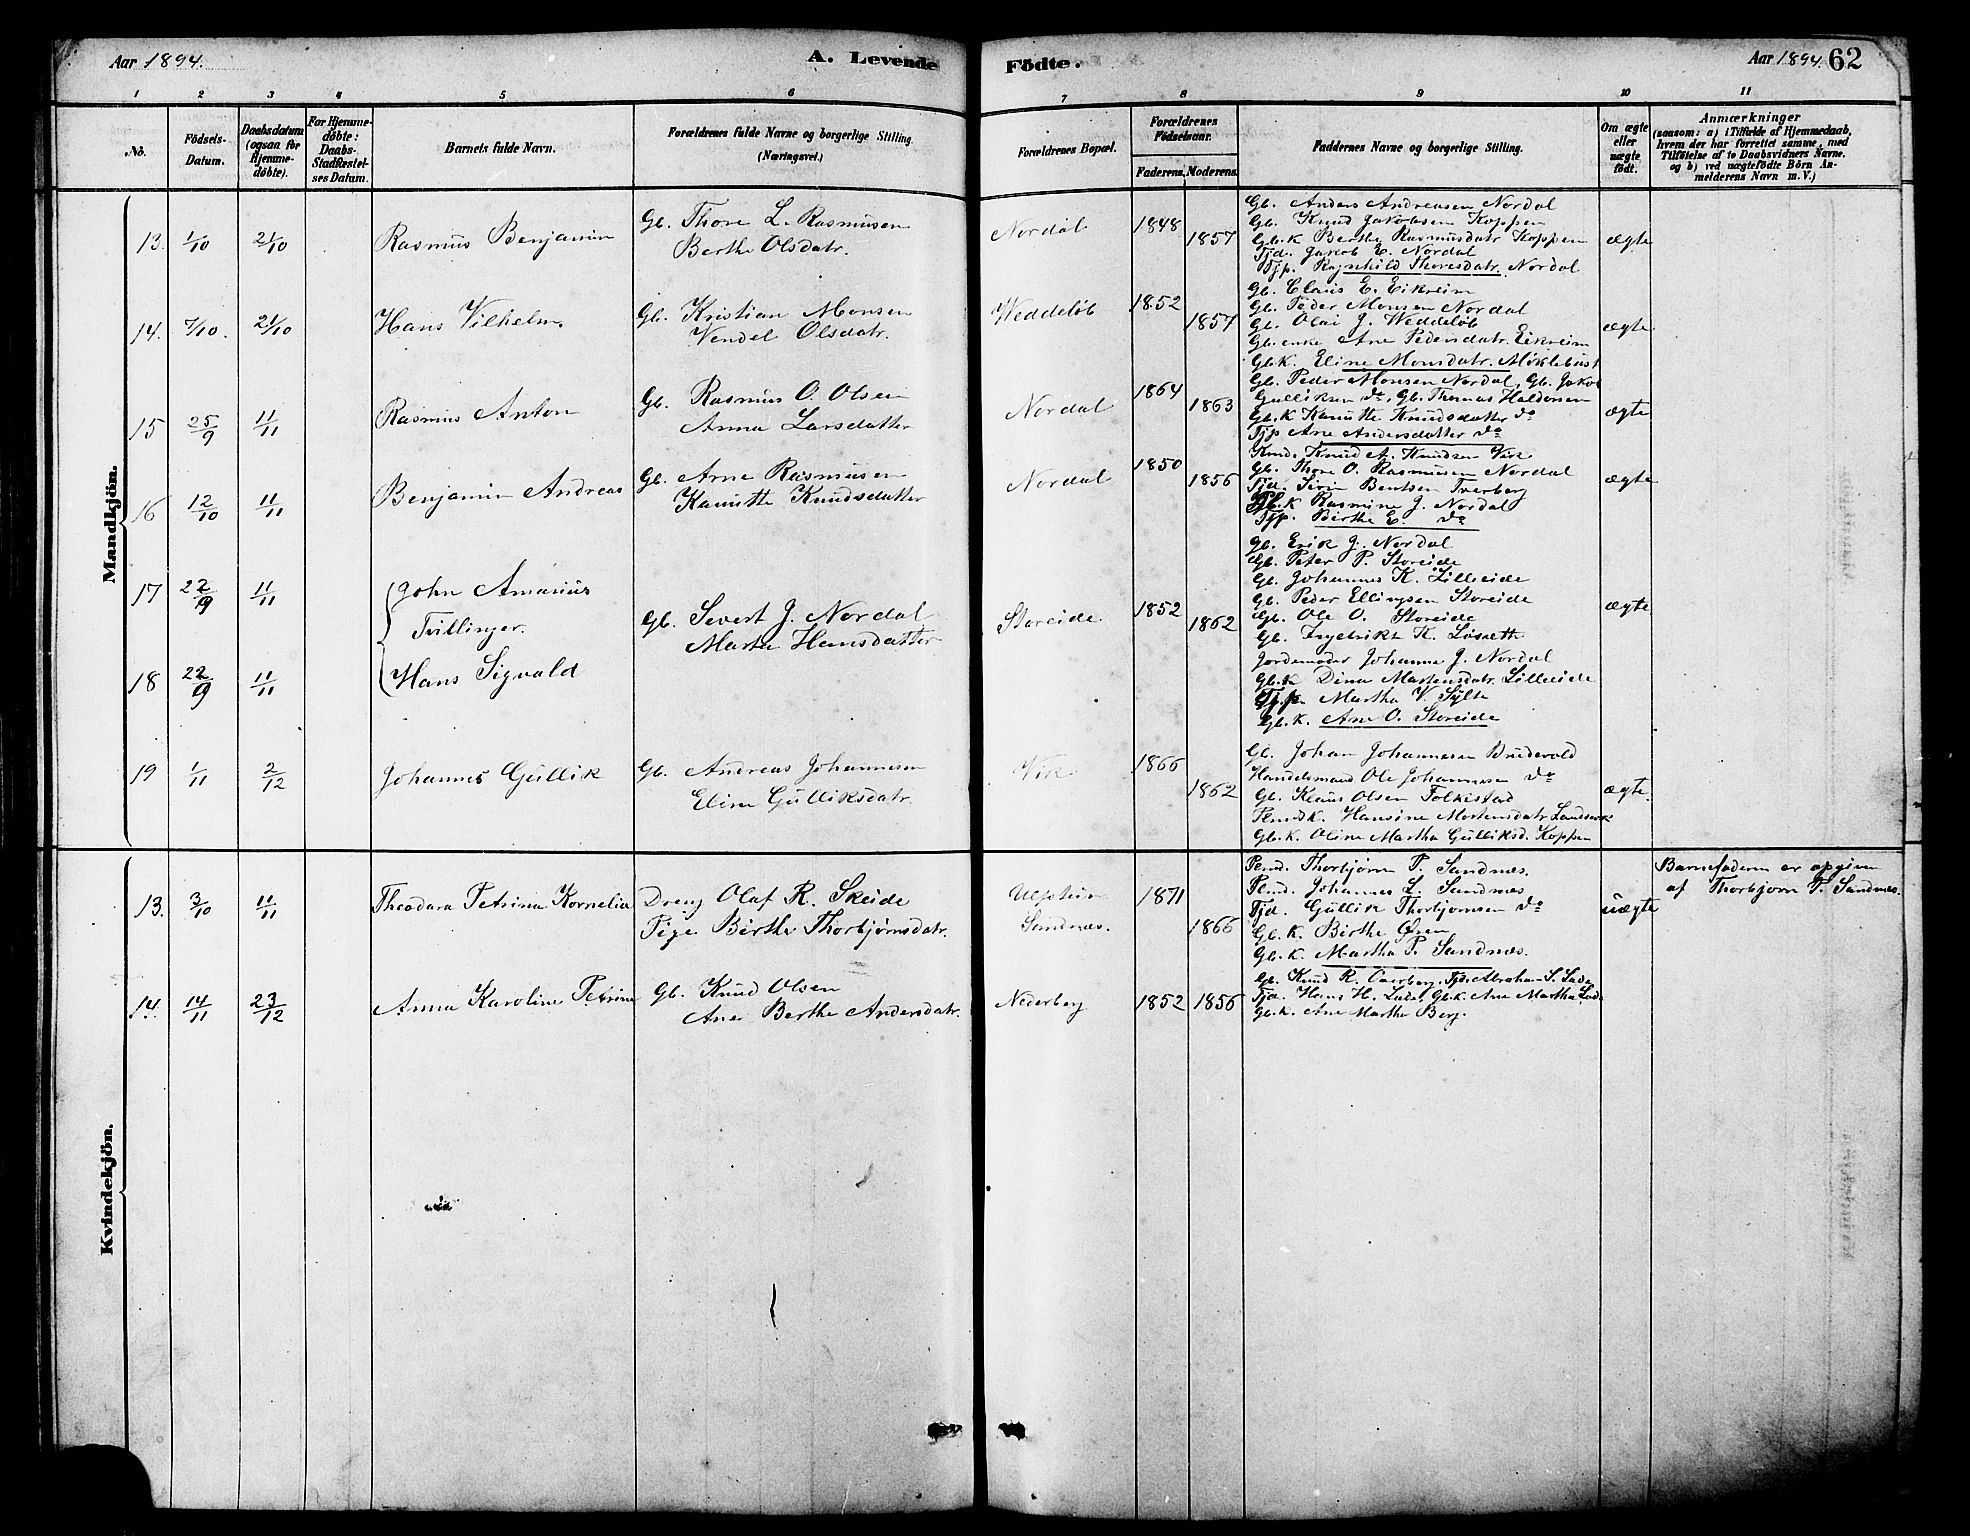 Aar 1894.
A. Levende Födte.
Aar 1894. 62
1 2 3 4 5 6 7 8 9 10 11
No.
Födsels-Datum.
Daabsdatum (ogsaa for Hjemme-döbte).
For Hjemme-döbte: Daabs-Stadfæstel-ses Datum.
Barnets fulde Navn.
Forældrenes fulde Navne og borgerlige Stilling. (Næringsvei.)
Forældrenes Bopæl.
Forældrenes Födselsaar.
Faderens. Moderens.
Faddernes Navne og borgerlige Stilling.
Om ægte eller uægte født.
Anmærkninger
(saasom: a) i Tilfælde af Hjemmedaab, hvem der har forrettet samme, med Tilföielse af to Daabsvidners Navne. og b) ved uægtefödte Börn An-melderens Navn m. V.)
Mandkjön.
13. 1/10 21/10 Rasmus Benjamin
Gb. Thore L. Rasmusen
Berthe Olsdatr.
Nordal 1848 1857
Gb. Anders Andreasen Nordal
Gb. Knud Jakobsen Koppen
Gb.k Berthe Rasmusdatr Koppen
Tjd. Jakob E. Nordal
Tjp. Ragnhild Thoresdatr. Nordal
ægte
14. 7/10. 21/10 Hans Vilhelm
Gb. Kristian Monsen
Vendel Olsdatr.
Weddeløb 1852 1857
Gb. Claus E. Eikreim
Gb. Peder Monsen Nordal
Gb. Olai J. Weddeløb
Gb. enke Ane Pedersdatr. Eikreim
Gb.K. Eline Monsdatr. Møklebust
ægte
15 25/9 11/11 Rasmus Anton
Gb. Rasmus O. Olsen
Anna Larsdatter
Nordal 1864 1863
Gb. Peder Monsen Nordal, Gb. Jakob
Gulliksen do, Gb. Thomas Haldorsen
Gb.K Kanutte Knudsdatter do
Tjp Ane Andersdatter do
ægte
16 12/10 11/11 Benjamin Andreas
Gb. Arne Rasmusen
Kanutte Knudsdatter
Nordal 1850 1856
Knud A. Knudsen Vik
Gb. Thore O. Rasmusen Nordal
Tjd. Sivin Bentsen Tverberg
Gb.k Rasmine J. Nordal
Tjp. Birthe E. do
ægte
17 22/9 11/11 John Amanius
Tvillinger.
18 22/9 11/11 Hans Sigvald
Gb. Severt J. Nordal
Marta Hansdatter
Storeide 1852 1862
Gb. Erik J. Nordal
Gb. Peter P. Storeide
Gb. Johannes K. Lilleeide
Gb. Peder Ellingsen Storeide
Gb. Ole O. Storeide
Gb. Ingebrikt K. Løsæth
Jordemoder Johanna J. Nordal
Gb.k Dina Martensdatr. Lilleeide
Tj.p. Martha V. Sylte
Gb.k. Ane O. Storeide
ægte
19 1/11 2/12 Johannes Gullik
Gb. Andreas Johannesen
Eline Gulliksdatr.
Vik 1866 1862
Gb. Johan Johannesen Brudevold
Handelsmand Ole Johannesen do
Gb. Klaus Olsen Folkestad
Hansine Mortensdatr Landsvik
Gb.k. Oline Martha Gulliksd. Koppen
ægte.
Kvindekjön.
13. 3/10 11/11 Theodora Petrina Kornelia
Dreng Olaf R. Skeide
Pige Birthe Thorbjørnsdatr.
Ulfstein
Sandnæs. 1871 1866
Pend. Thorbjørn P. Sandnæs.
Pend. Johannes L. Sandnæs
Tjd. Gullik Thorbjørnsen do
Gb.K. Birthe Øren
Gb.K. Martha P. Sandnæs.
uægte
Barnefaderen er opgiven
af Thorbjørn P. Sandnæs.
14. 14/11 23/12 Anna Karoline Petrine
Gb. Knud Olsen
Ane Berthe Andersdatr.
Nederberg 1852 1856
Gb. Knud R. Overberg, Tjd. Abraham S. Lade
Tjd. Hans H. Lade, Gb.k. Ane Martha Lade
Gb.k. Ane Marthe Berg.